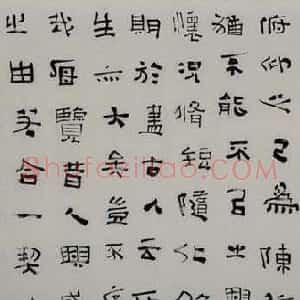 俯仰之已為陳
猶不能不以之興
懷況脩短隨化
期於盡古人云死
生亦大矣豈不痛
哉每覽昔人興感
之由若合一契